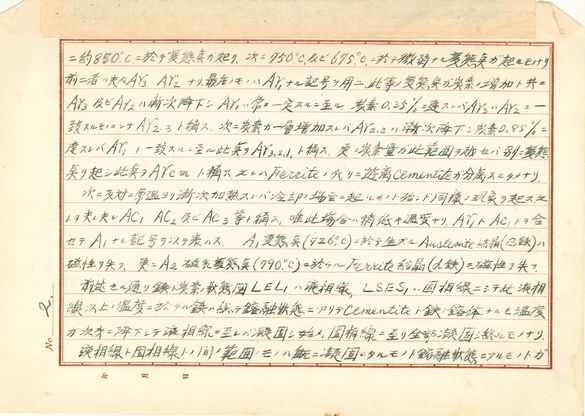 ニ約850°Cニ於テ変態点ガ起リ、次ニ750°C及ビ675°Cニ於テ微弱ナル変態点ガ起ルモノナリ
前二者ハ夫々Ar3 Ar2ナリ最后ノモノハAr1ナル記号ヲ用ユ 此等ノ変態点ガ炭素ノ増加ト共ニ
Ar3及ビAr2ハ漸次降下シAr1ハ常ニ一定スルニ至ル 炭素0.35%ニ達スレバAr3ハAr2ニ一
致スルモノニシテAr2.3ト稱ス、次ニ炭素ガ一層増加スレバAr2.3ハ漸次降下シ炭素0.85%ニ
達スレバAr1ト一致スルニ至ル此点ヲAr3,2,1ト稱ス、更ニ炭素量ガ此範囲ヲ越セバ別ニ変態
点ヲ起シ此点ヲArcmト稱スコレハFerriteノ代リニ遊離Cementiteガ分離スルタメナリ、
次ニ反対ニ常温ヨリ漸次加熱スレバ冷却ノ場合ニ起ルモノト殆ンド同様ノ現象ヲ起スコ
レヲ夫々AC1 AC2及ビAC3等ト稱ス、唯此場合ハ稍低キ温度ナリ、Ar1トAC1トヲ合
セテA1ナル記号ヲ以テ表ハス A1変態点(726°C)ニ於テ生ズルAustenite結晶(γ鉄)ハ
磁性ヲ失フ、更ニA2磁気変態点(790°C)ニ於テルFerrite結晶(α鉄)モ磁性ヲ失フ、
前述セル通リ鉄ト炭素状態図LELiハ液相線、LSES1ハ固相線ニシテ此液相
線以上ノ温度ニ於テハ鉄ハ總テ鎔融状態ニアリテCementiteト鉄ノ鎔体ナルモ温度
ガ次第ニ降下シテ液相線ニ至レバ凝固シ始メ、固相線ニ至リ全部凝固シ終ルモノナリ、
液相線ト固相線トノ間ノ範囲ノモノハ既ニ凝固シタルモノト鎔融状態ニアルモノトガ
No. 2.
年 月 日